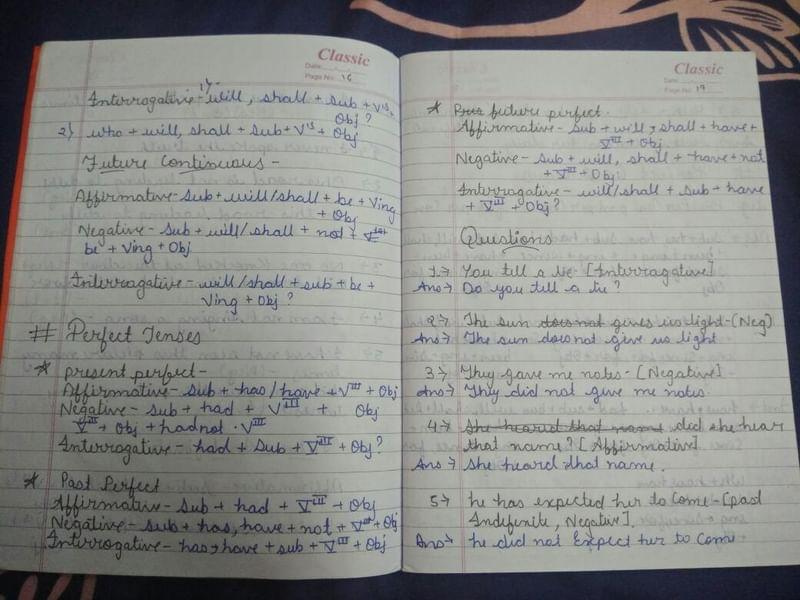 Classic
Date
Page No. 16
1)
Interrogative - will, shall + sub + V1st +
Obj ?
2) who + will, shall + sub + V1st + Obj
Future Continuous -
Affirmative - sub + will/shall + be + Ving
+ Obj
Negative - sub + will/shall + not +
be + Ving + Obj
Interrogative - will/shall + sub + be +
Ving + Obj ?
# Perfect Tenses
* present perfect -
Affirmative - sub + has/have + VIII + Obj
Negative - sub + had + VIII + Obj
VIII + Obj + hadnot . VIII
Interrogative - had + Sub + VIII + Obj ?
* Past Perfect
Affirmative - sub + had + VIII + Obj
Negative - sub + has, have + not + + Obj
Interrogative - has, have + sub + VIII + Obj
Classic
Date
Page No. 17
* future perfect.
Affirmative - sub + will, shall + have +
VIII + Obj
Negative - sub + will, shall + have + not
+ VIII + Obj
Interrogative - will/shall + sub + have
+ VIII + Obj ?
Questions
1 → You tell a lie - [Interrogative]
Ans → Do you tell a lie ?
2 → The sun does not gives us light - (Neg)
Ans → The sun does not give us light
3 → They gave me notes - [Negative]
Ans → They did not give me notes.
4 → She heard that name did she hear
that name ? [Affirmative]
Ans → She heard that name.
5 → he has expected her to come - [past
Indefinite, Negative].
Ans → he did not expect her to come